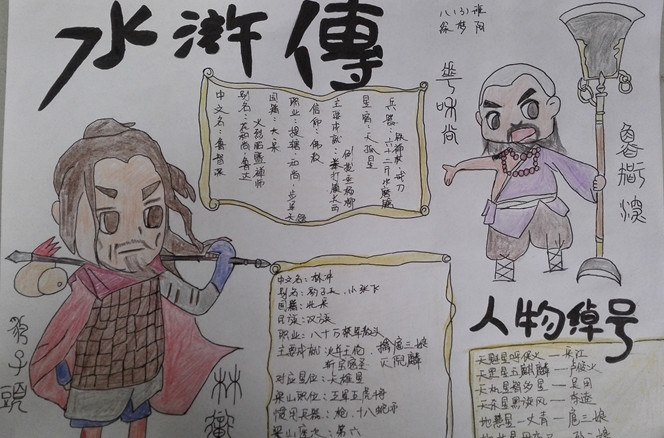 水滸傳
八(3)班
花和尚
魯智深
中文名：鲁智深
别名：花和尚、鲁达
国籍：大宋
职业：提辖、和尚、步军头领
信仰：佛教
主要成就：拳打镇关西
倒拔垂杨柳
星宿：天孤星
兵器：六十二斤水磨禅杖
戒刀
中文名：林冲
别名：豹子头、小张飞
国籍：北宋
民族：汉族
职业：八十万禁军教头
主要成就：火并王伦、擒扈三娘
对应星位：天雄星
梁山职位：五虎将
惯用兵器：枪、丈八蛇矛
梁山座次：第六
豹子頭
林衝
人物绰号
天魁星呼保义——宋江
天罡星玉麒麟——卢俊义
天机星智多星——吴用
天杀星黑旋风——李逵
地慧星一丈青——扈三娘